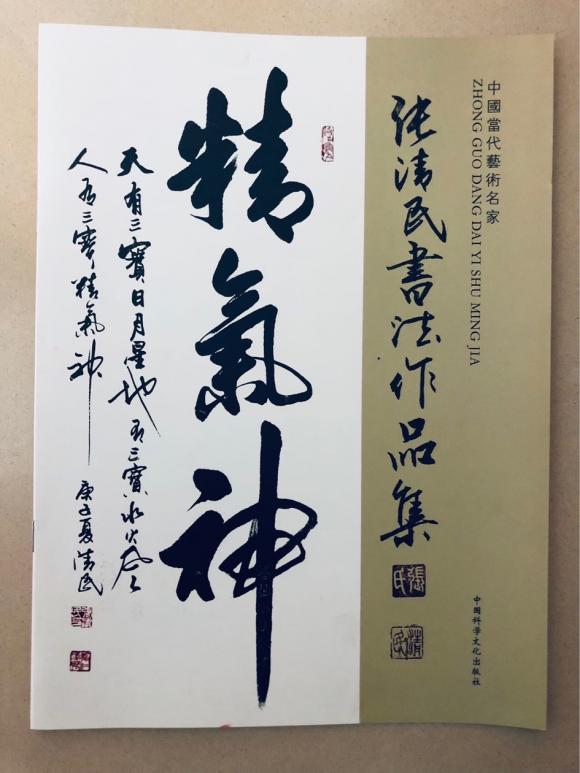 中國當代藝術名家
ZHONG GUO DANG DAI YI SHU MING JIA
张清民書法作品集
張氏
清民
中国科学文化出版社
精氣神
天有三寶日月星地有三寶水火風
人有三寶精氣神
庚子夏清民